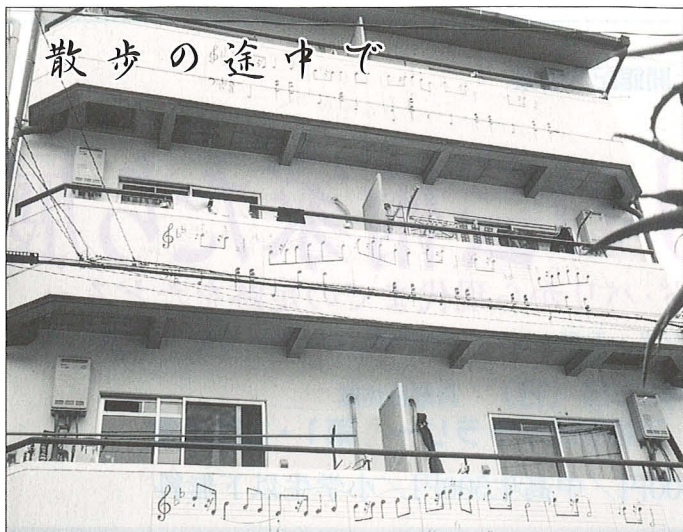 散歩の途中で